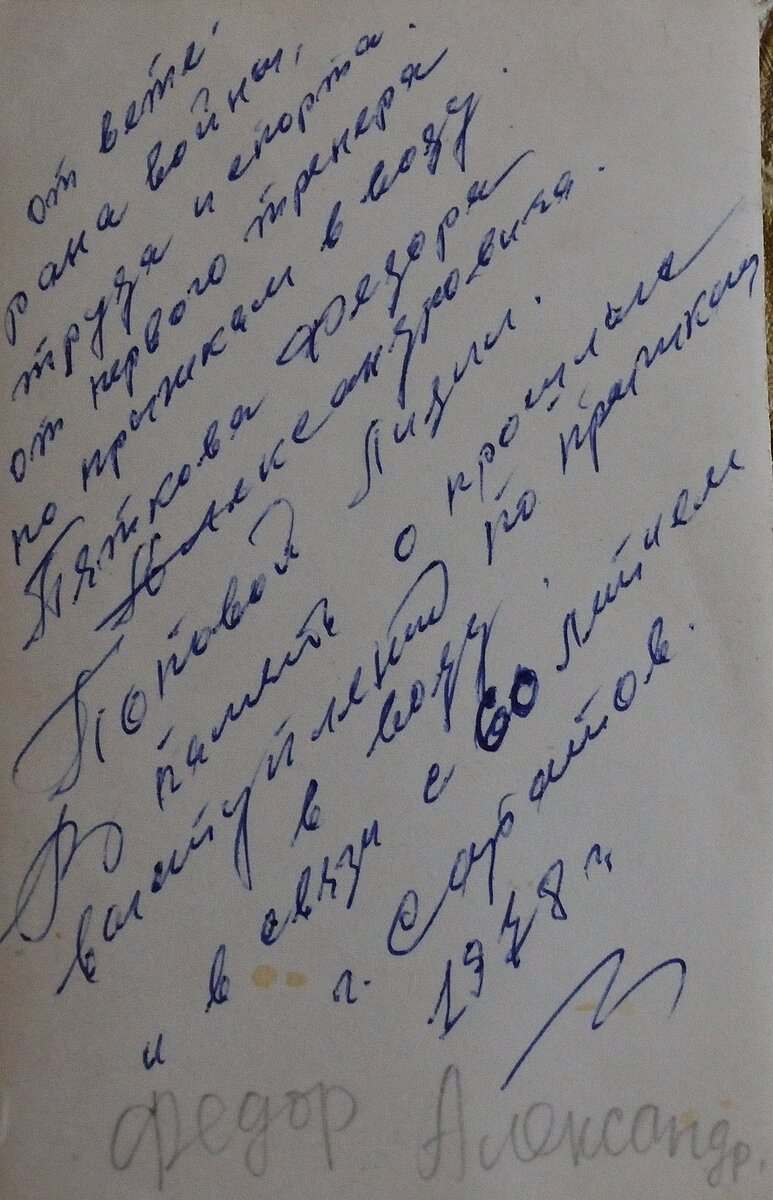 от вете-
рана войны,
труда и спорта.
от первого тренера
по прыжкам в воду.
Пяткова Федора
Александровича.
Поповой Лидии.
В память о прошлых
выступлений по прыжкам
в воду.
и в связи с 60 летием
г. Саратов.
1978 г.
Федор Александр.